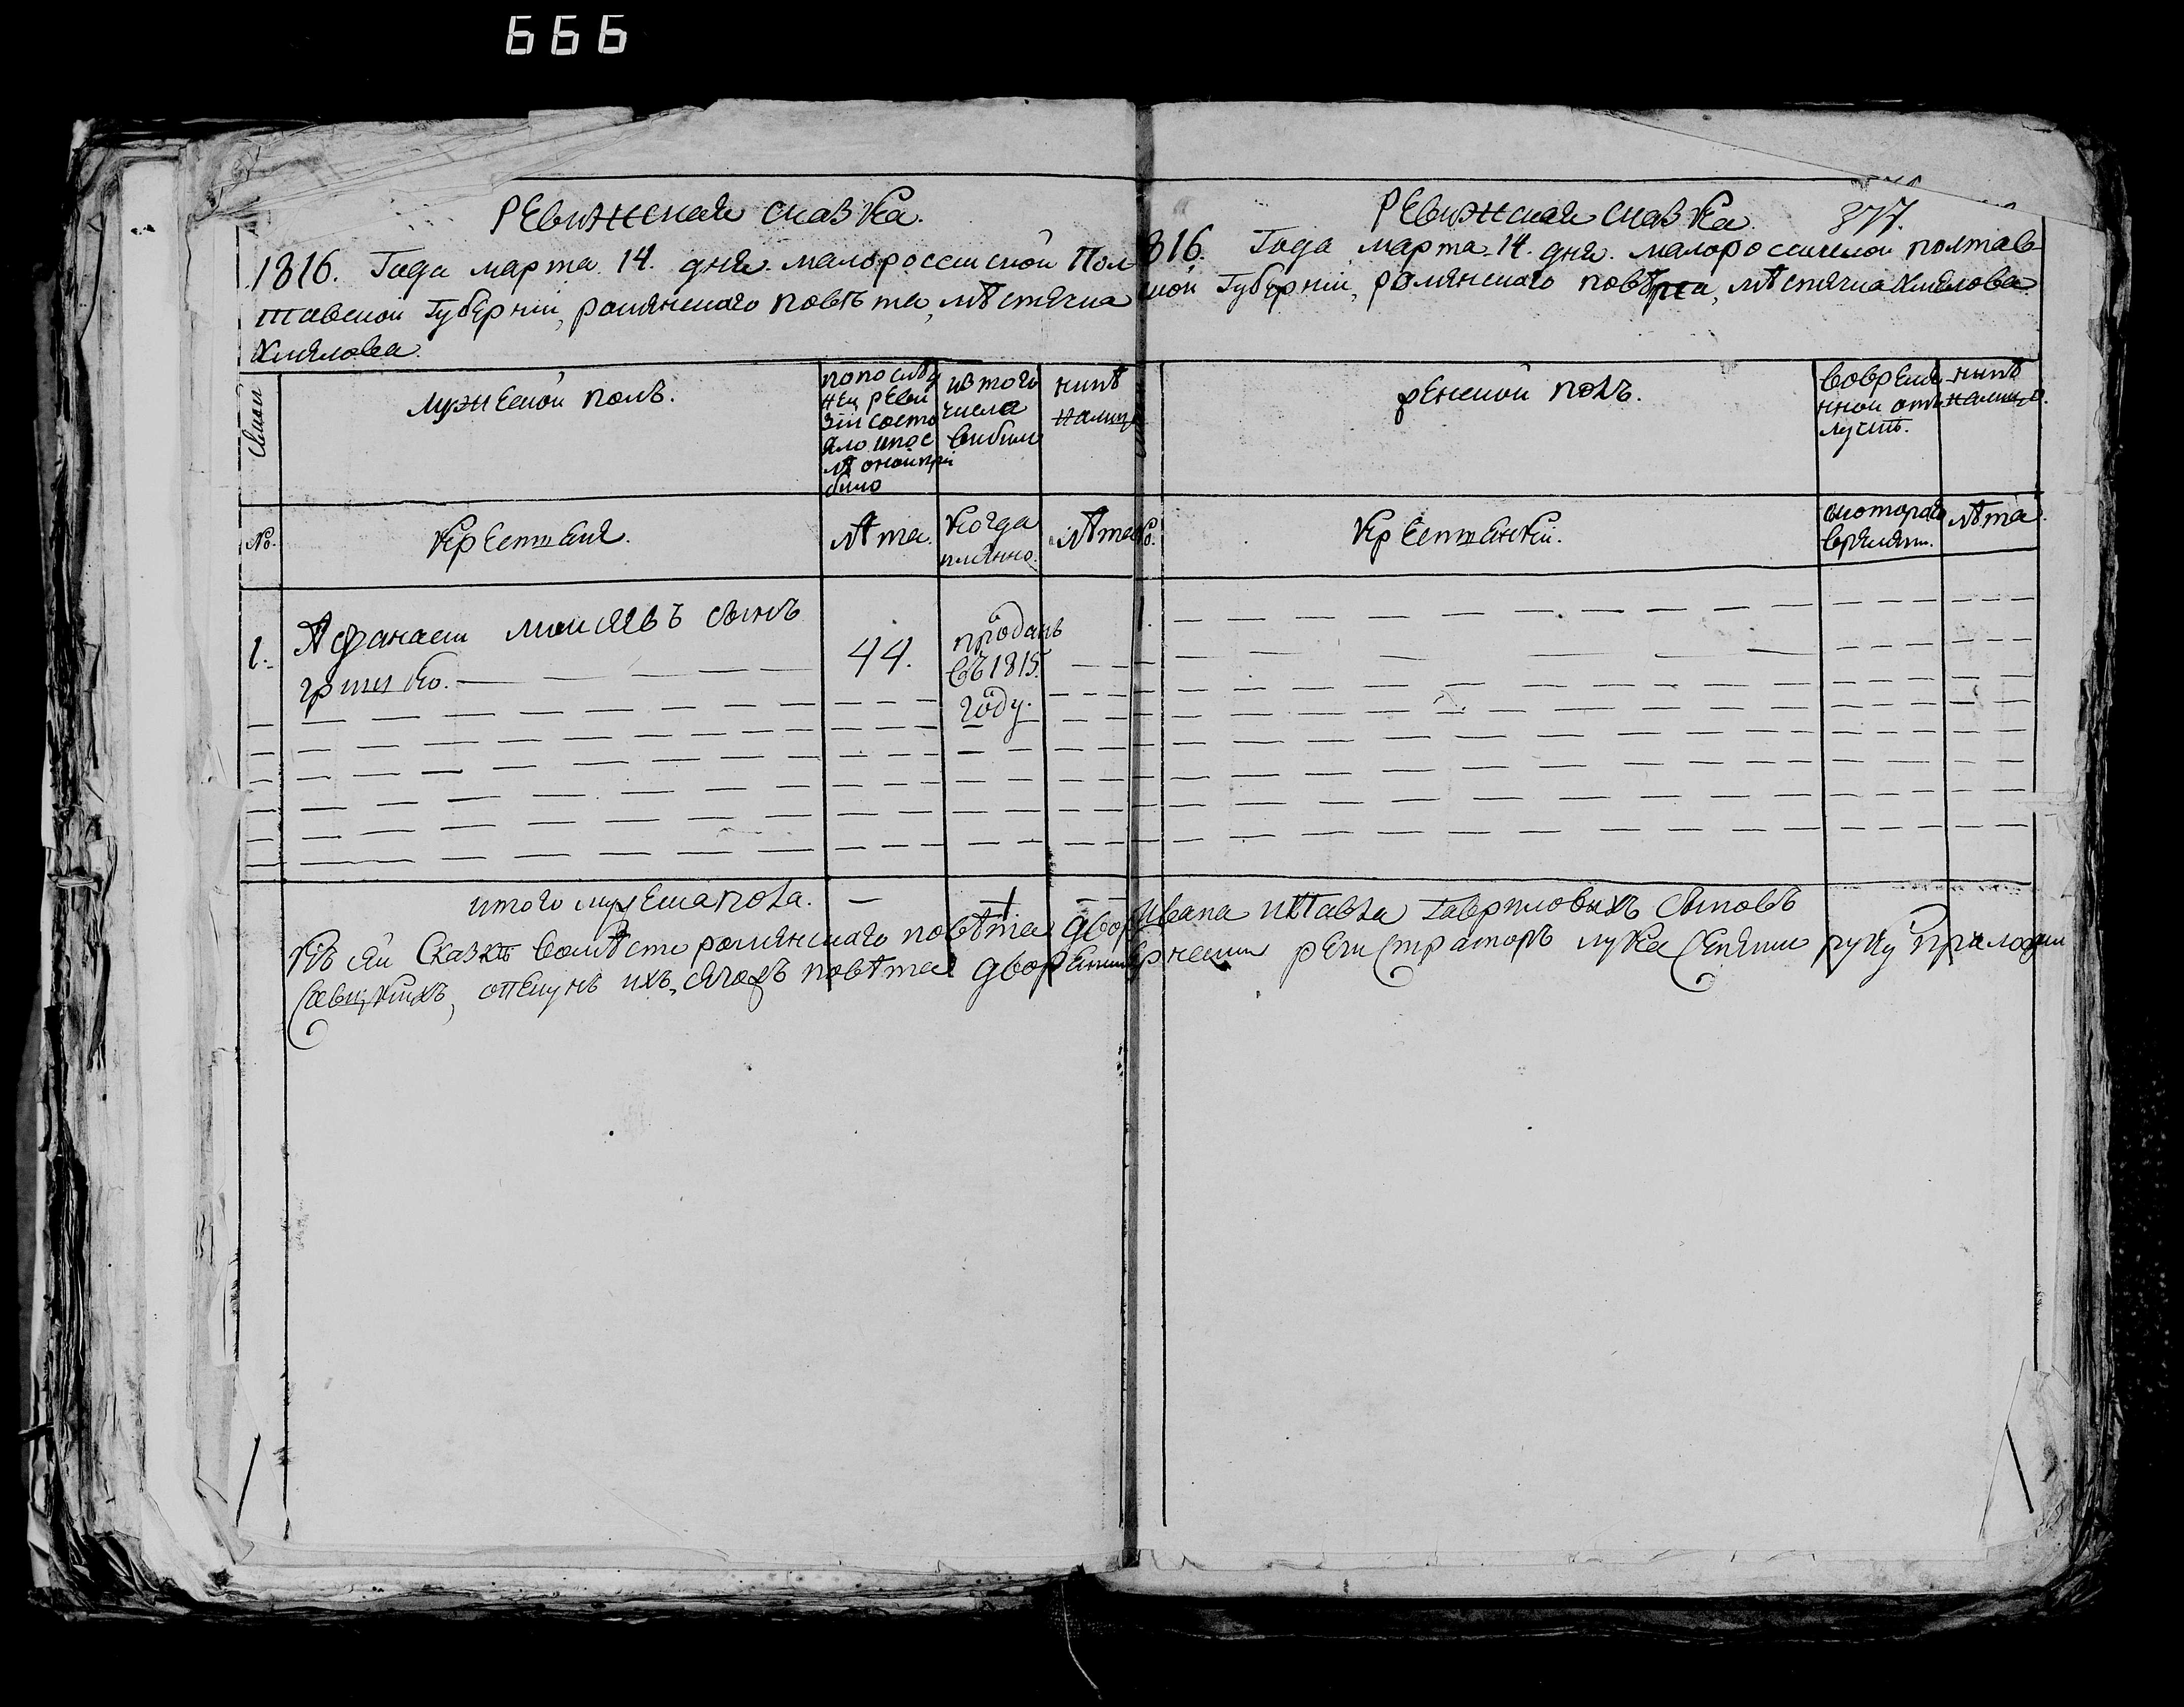 666
Ревижская сказка.
1816. Года марта 14. дня. малороссийской Пол
тавской Губерніи, роменского повѣта, мѣстечка
Хмелова.
Семьи
мужеской полъ.
по послѣд
ней реви
зіи состо
яло и пос
лѣ оной при
било
из того
числа
вибило
нинѣ
налицо
No.
Крестяне.
лѣта.
Когда
имянно.
лѣта
1.
Афанасий Моисеевъ сынъ
гришко.
44.
проданъ
въ 1815.
году.
итого мужеска пола. — 1 —
Ревижская сказка. 377.
1816. Года марта 14. дня. малороссийской полтав
ской Губерніи, роменского повѣта, мѣстечка Хмелова
женской полъ.
во времян
ной отъ
лучкѣ.
нинѣ
налицо.
No.
Крестянки.
с которого
времяни.
лѣта.
1.
Къ сей Сказкѣ вомѣсто роменского повѣта двор Ивана и Павла Гавриловыхъ сыновъ
Савицкихъ, опекунъ ихъ, сегожъ повѣта дворенин регистраторъ лука руку приложил